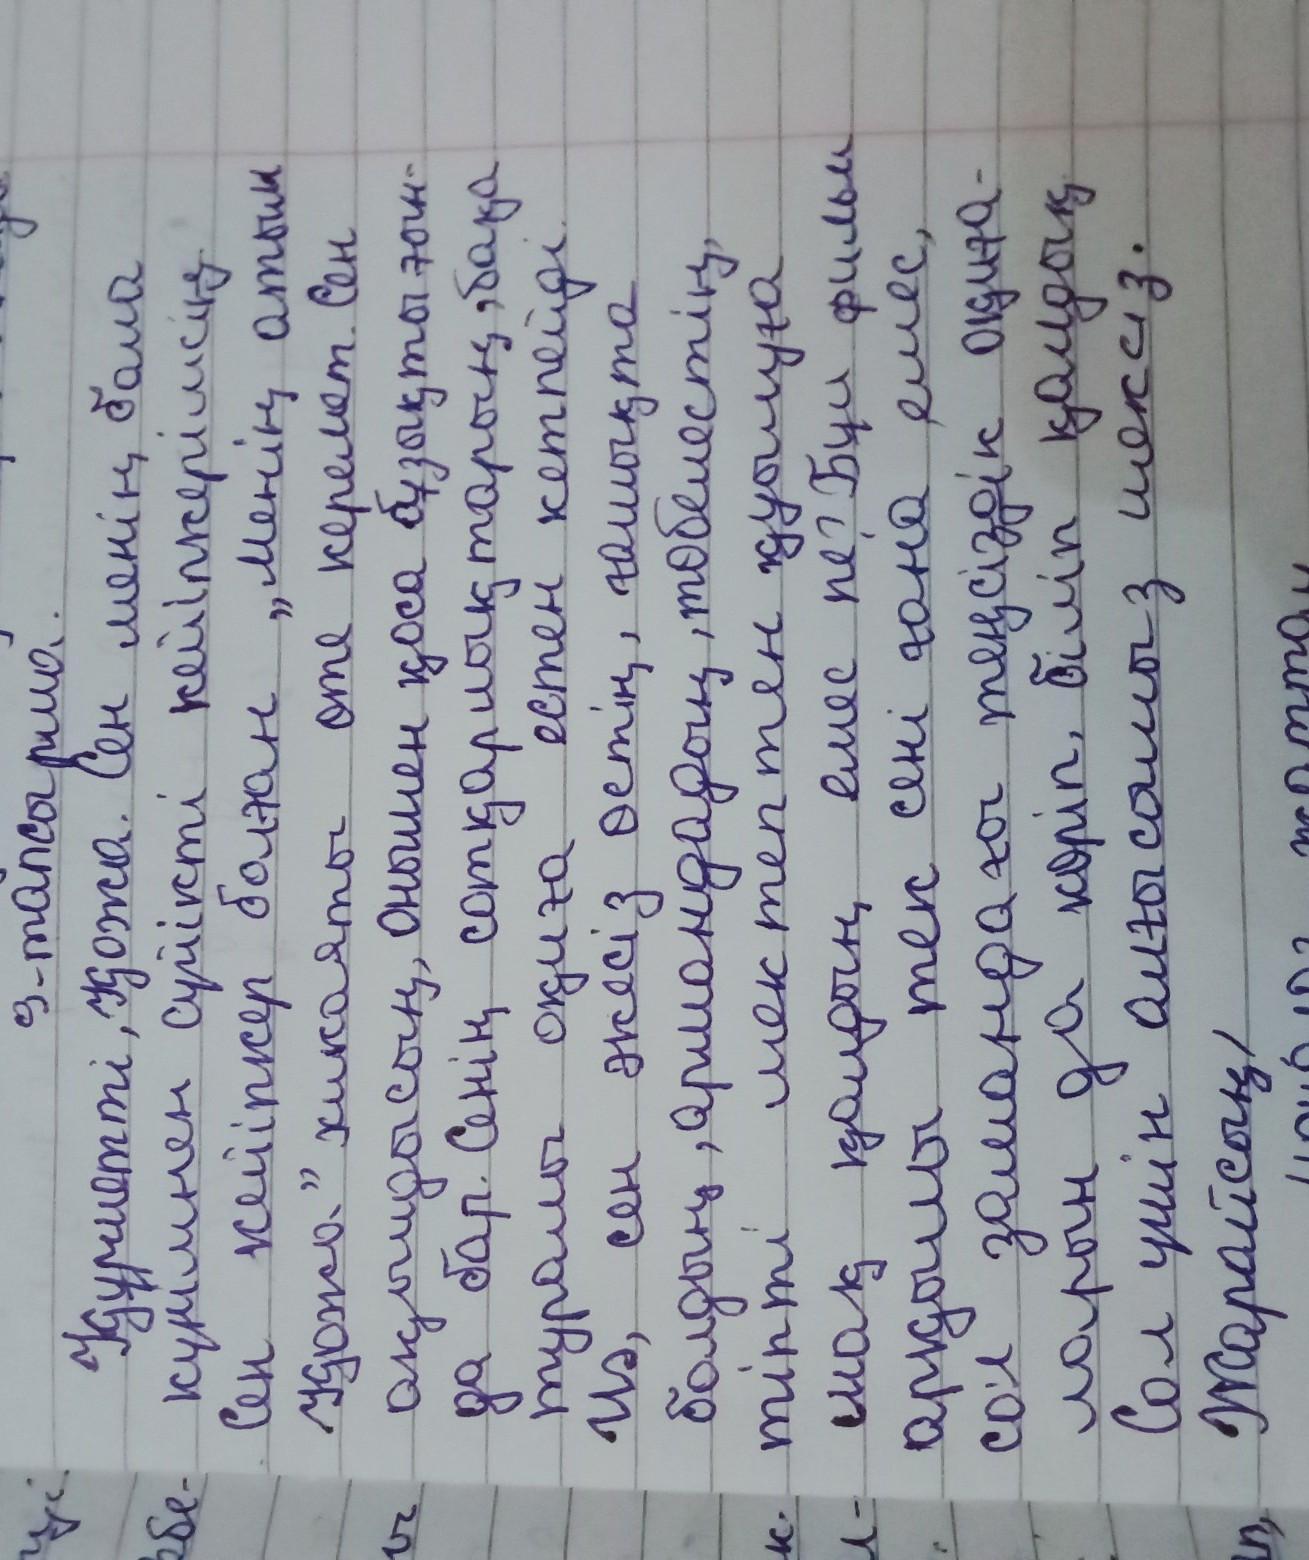 3-тапсырма.
Құрметті, Қожа. Сен менің бала
күнімнен сүйікті кейіпкерімсің.
Сен кейіпкер болған „Менің атым
Қожа" хикаяты өте керемет. Сен
ақылдысың, онымен қоса бұзықтығың-
да бар. Сенің сотқарлықтарың, бақа
туралы оқиға естен кетпейді.
Иә, сен әкесіз өстің, ғашықта
болдың, армандадың, төбелестің,
тіпті мектептен қуылуға
шақ қалдың емес пе? Бұл фильм
арқылы тек сені ғана емес,
сол замандағы теңсіздік оқиға-
ларын да көріп, біліп қалдық.
Сол үшін алғысымыз шексіз.
Жарайсың!